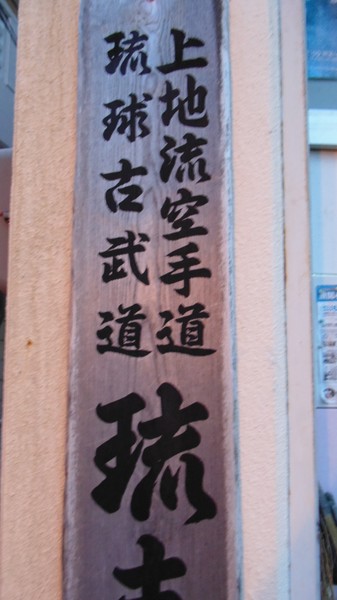 上地流空手道
琉球古武道
琉